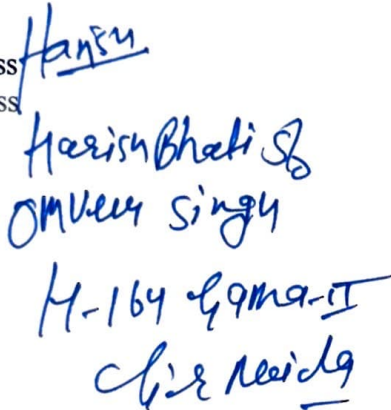 ss Harish
ss
Harish Bhati S/o
Omveer Singh
H-164 Gama-II
Gr. Noida